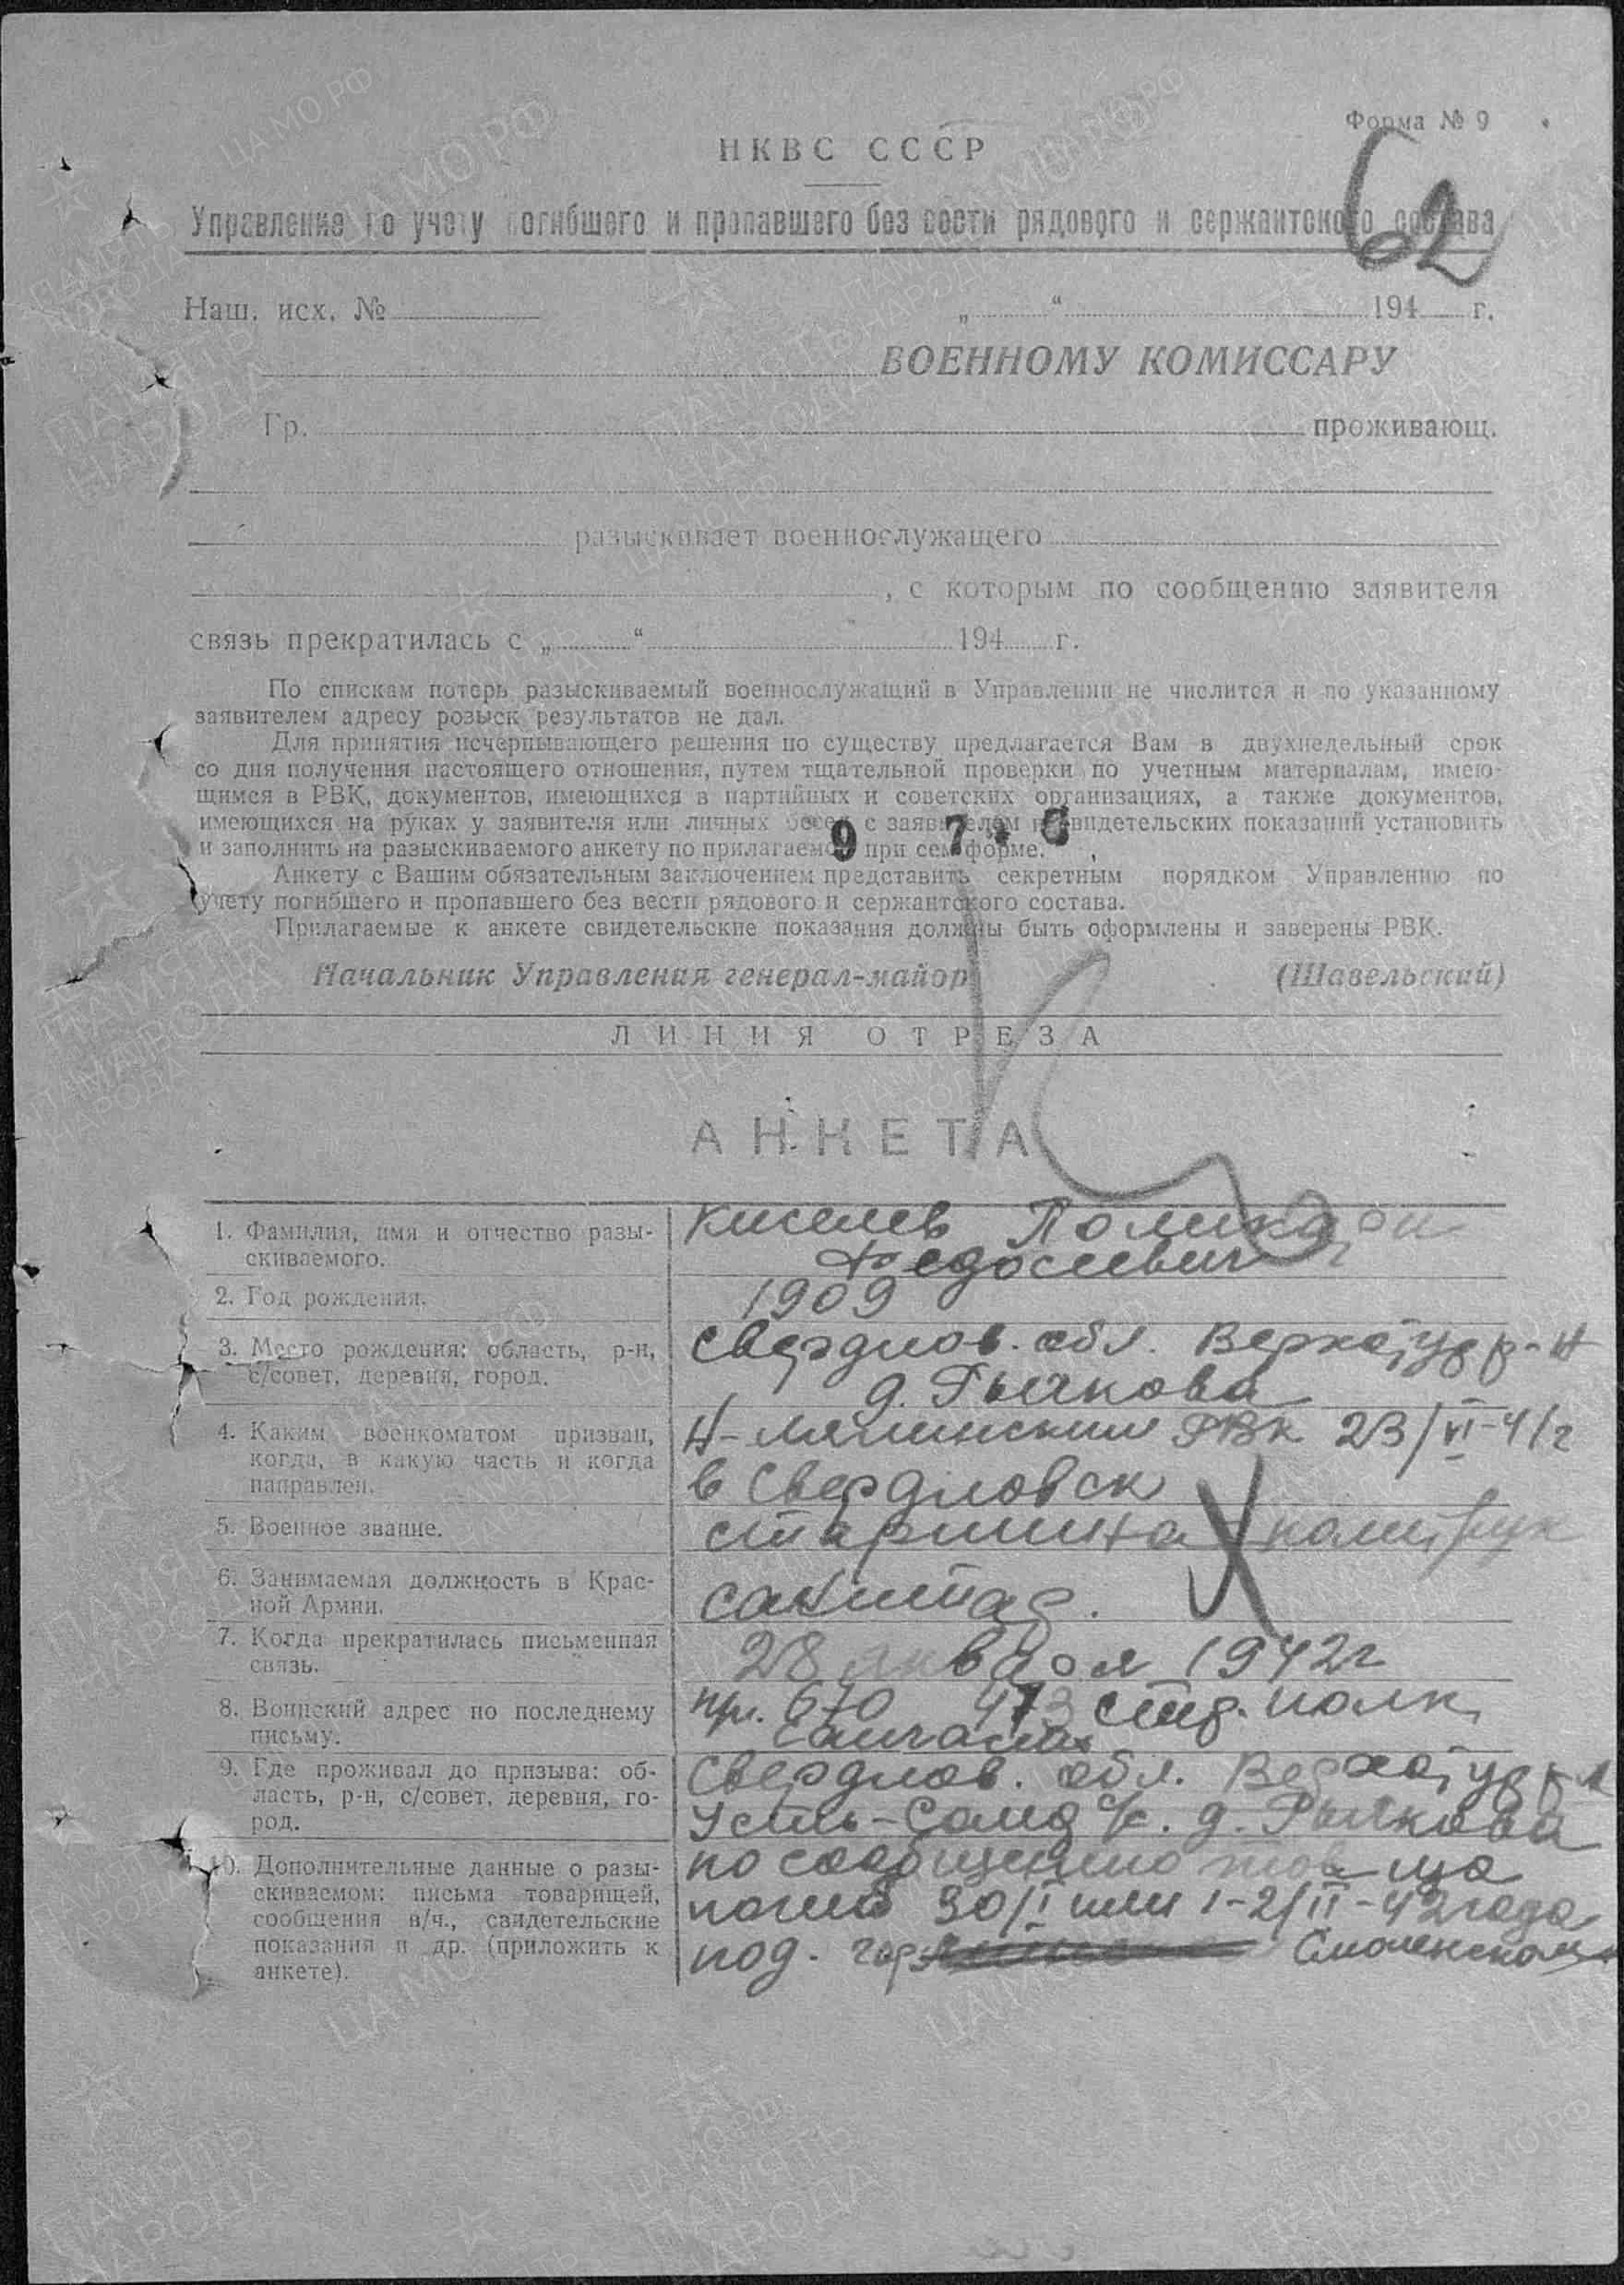 Форма № 9
62
НКВС СССР
Управление по учету погибшего и пропавшего без вести рядового и сержантского состава
Наш. исх. № „ “ 194 г.
ВОЕННОМУ КОМИССАРУ
Гр. проживающ.
разыскивает военнослужащего
, с которым по сообщению заявителя
связь прекратилась с „ “ 194 г.
По спискам потерь разыскиваемый военнослужащий в Управлении не числится и по указанному
заявителем адресу розыск результатов не дал.
Для принятия исчерпывающего решения по существу предлагается Вам в двухнедельный срок
со дня получения настоящего отношения, путем тщательной проверки по учетным материалам, имею-
щимся в РВК, документов, имеющихся в партийных и советских организациях, а также документов,
имеющихся на руках у заявителя или личных бесед с заявителем и свидетельских показаний установить
и заполнить на разыскиваемого анкету по прилагаемой при сем форме.
Анкету с Вашим обязательным заключением представить секретным порядком Управлению по
учету погибшего и пропавшего без вести рядового и сержантского состава.
Прилагаемые к анкете свидетельские показания должны быть оформлены и заверены РВК.
Начальник Управления генерал-майор (Шавельский)
ЛИНИЯ ОТРЕЗА
АНКЕТА
1. Фамилия, имя и отчество разы-
скиваемого.
Киселев Поликарп
Федосеевич
2. Год рождения.
1909
3. Место рождения: область, р-н,
с/совет, деревня, город.
Свердлов. обл. Верхотур р-н
д. Рычкова
4. Каким военкоматом призван,
когда, в какую часть и когда
направлен.
Н-Лялинским РВК 23/VI-41г
в Свердловск
5. Военное звание.
старшина политрук
6. Занимаемая должность в Крас-
ной Армии.
санитар.
7. Когда прекратилась письменная
связь.
28 января 1942г
8. Воинский адрес по последнему
письму.
п/п. 670 473 стр. полк,
санчасть
9. Где проживал до призыва: об-
ласть, р-н, с/совет, деревня, го-
род.
Свердлов. обл. Верхотур р-н
Усть-Салда с/с. д. Рычкова
10. Дополнительные данные о разы-
скиваемом: письма товарищей,
сообщения в/ч., свидетельские
показания и др. (приложить к
анкете).
по сообщению тов-ща
погиб 30/I или 1-2/II-42 года
под. гор. Смоленском